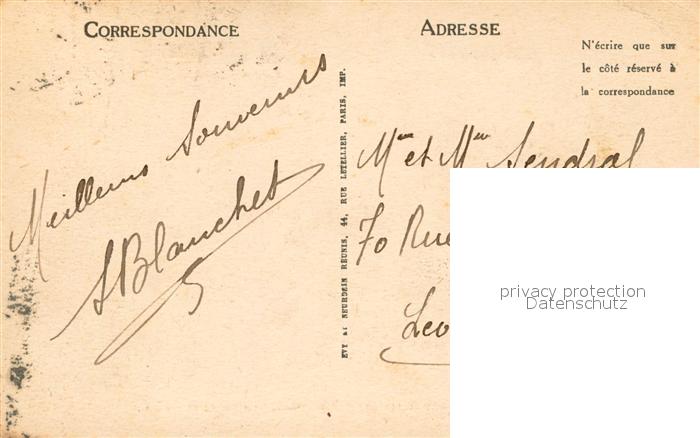 CORRESPONDANCE
ADRESSE
N'écrire que sur
le côté réservé à
la correspondance
Meilleurs Souvenirs
SBlanchet
LEVY & NEURDEIN RÉUNIS, 44, RUE LETELLIER, PARIS, IMP.
Mme et Mr Sendral
70 Rue
privacy protection
Datenschutz